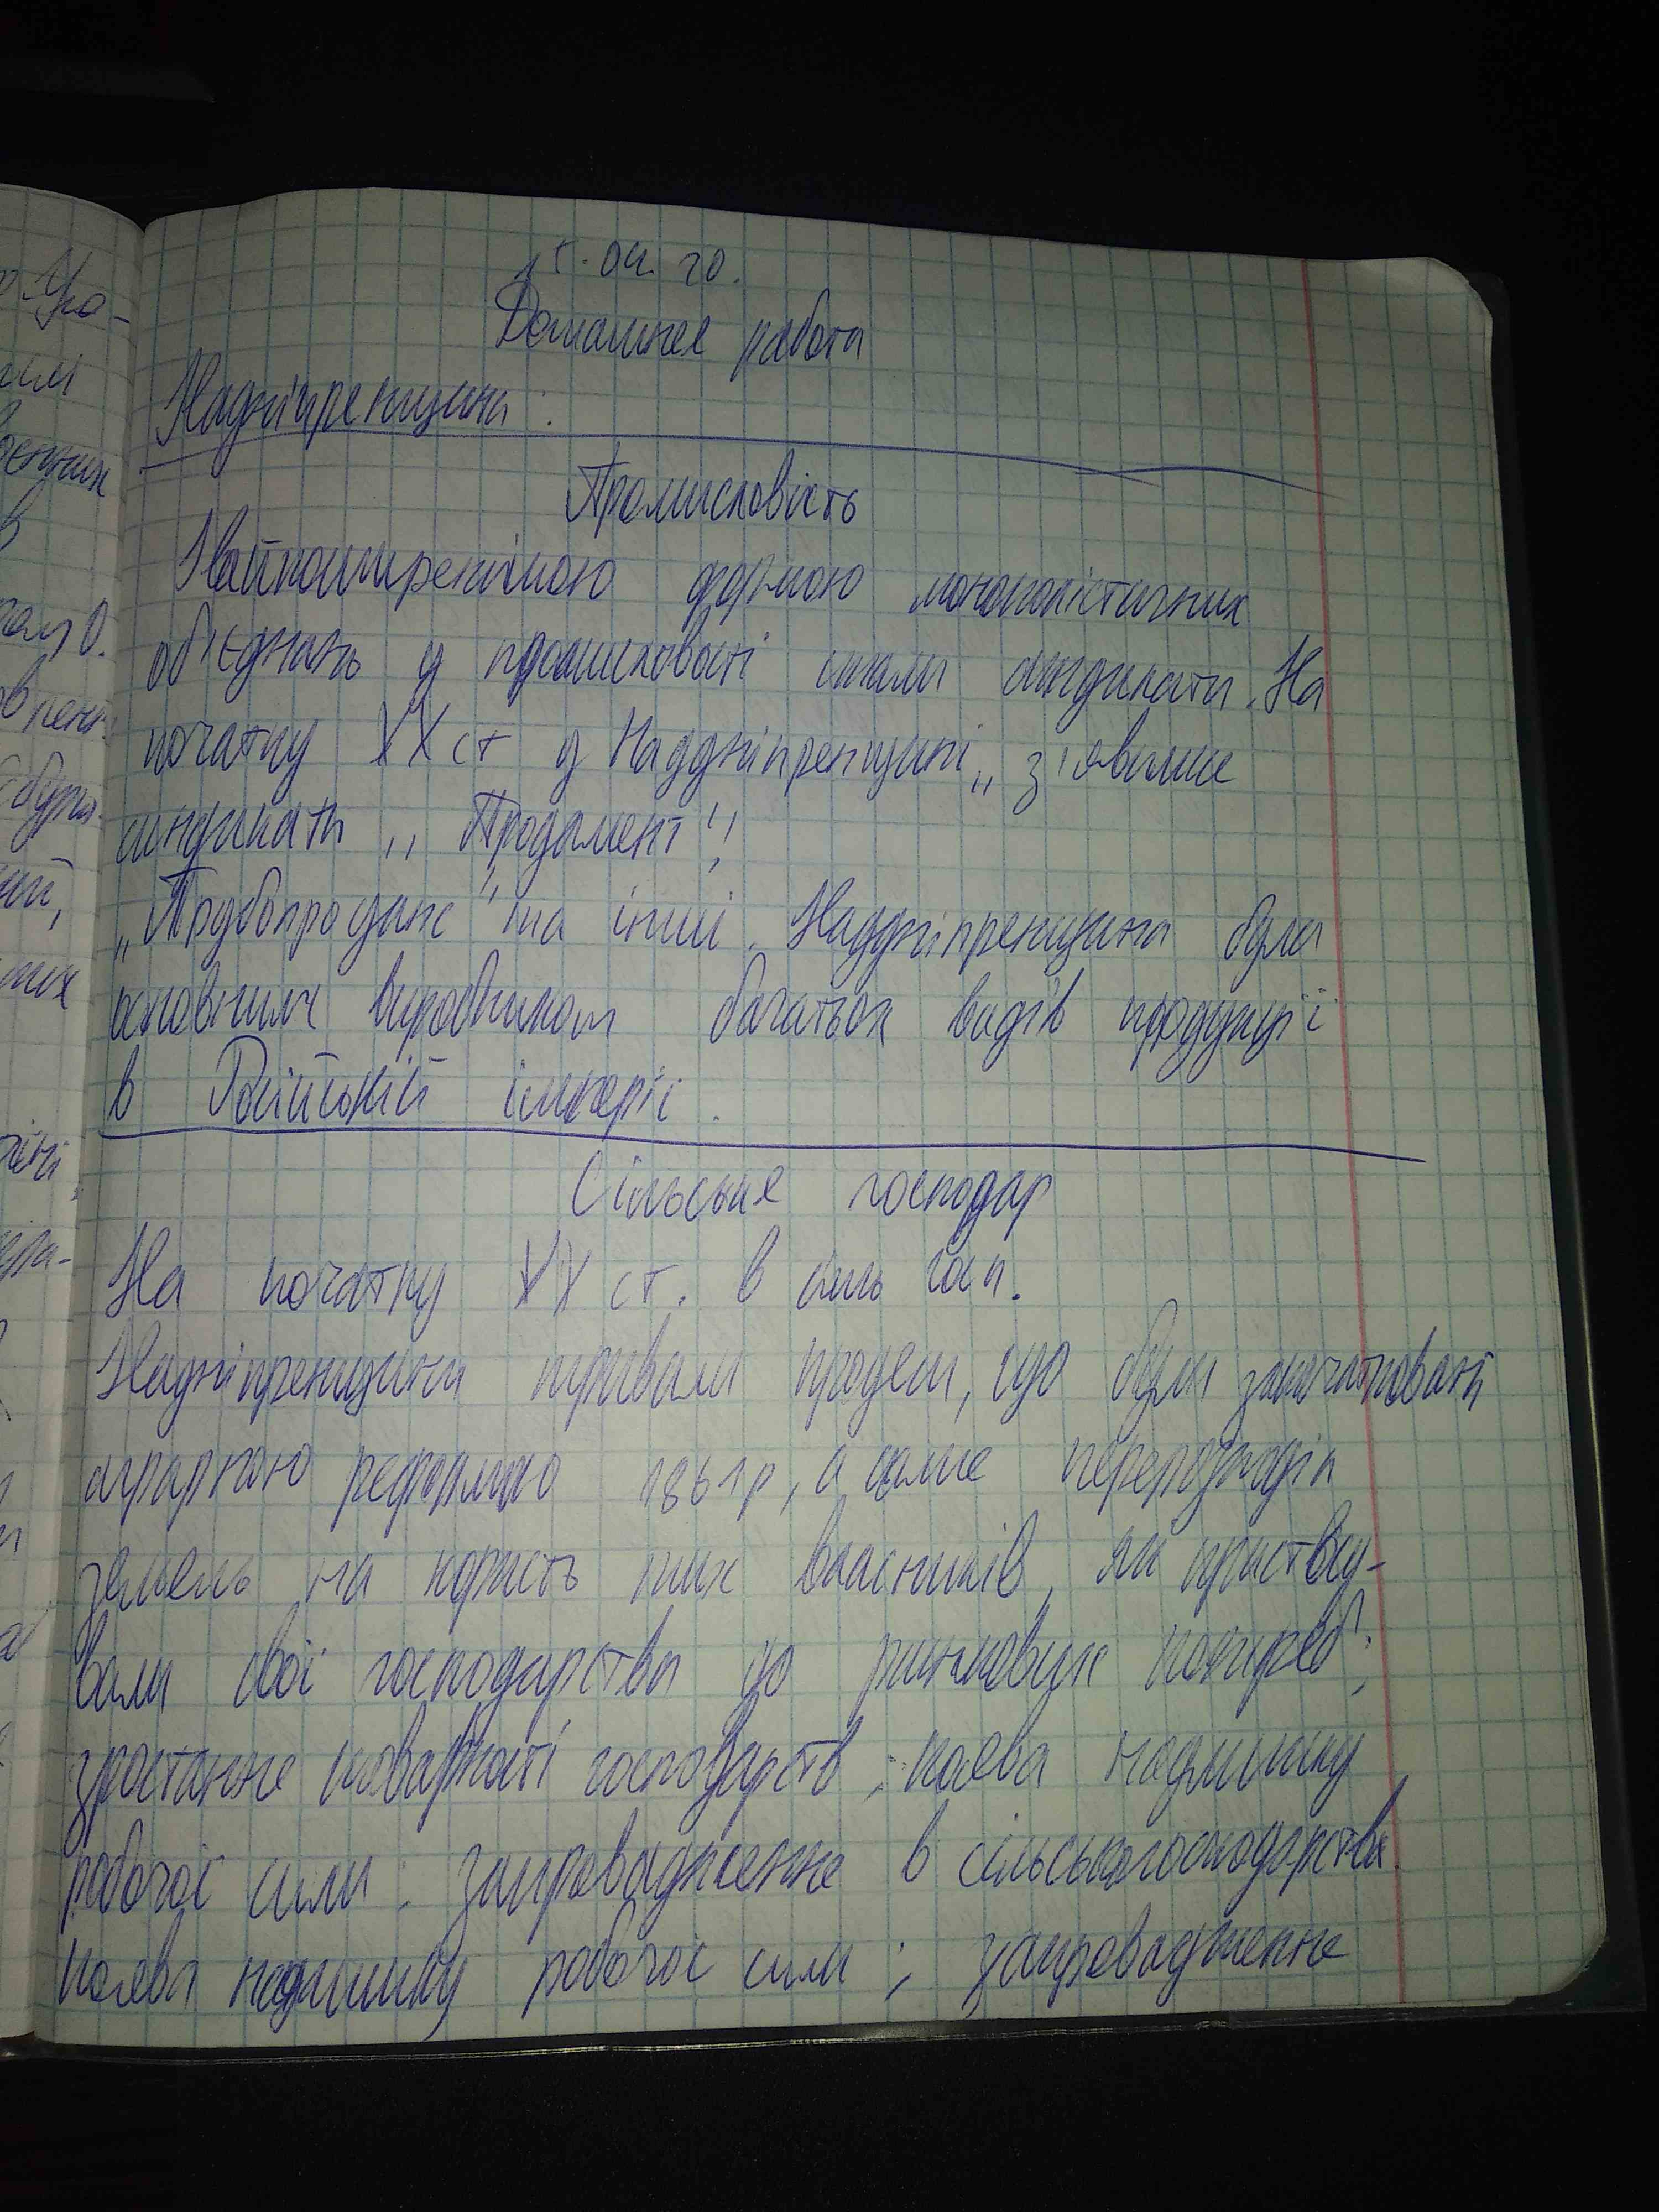 5.04.20.
Домашнея работа
Наднiпренщина:
Промисловість
Найпоширенішою формою монополістичних
об'єднань у промисловості стали синдикати. На
початку XX ст у Наддніпренщині „ з'явилие
синдикати „Продамент",
„Трубопродаж" та інші. Наддніпренщина була
основним виробником багатьох видів продукції
в Російській імперії.
Сільське господар
На початку XX ст. в сіль госп.
Наднiпренщини тривали процеси, що були започатковані
аграрною реформою 1861р, а саме перерозподіл
земель на користь тих власників, які пристосу-
вали свої господарства до ринкових потреб;
зростанне товарності господарств; поева надлишку
робочої сили. запровадженне в сільськогосподарства
поева надлишку робочої сили; запровадженне